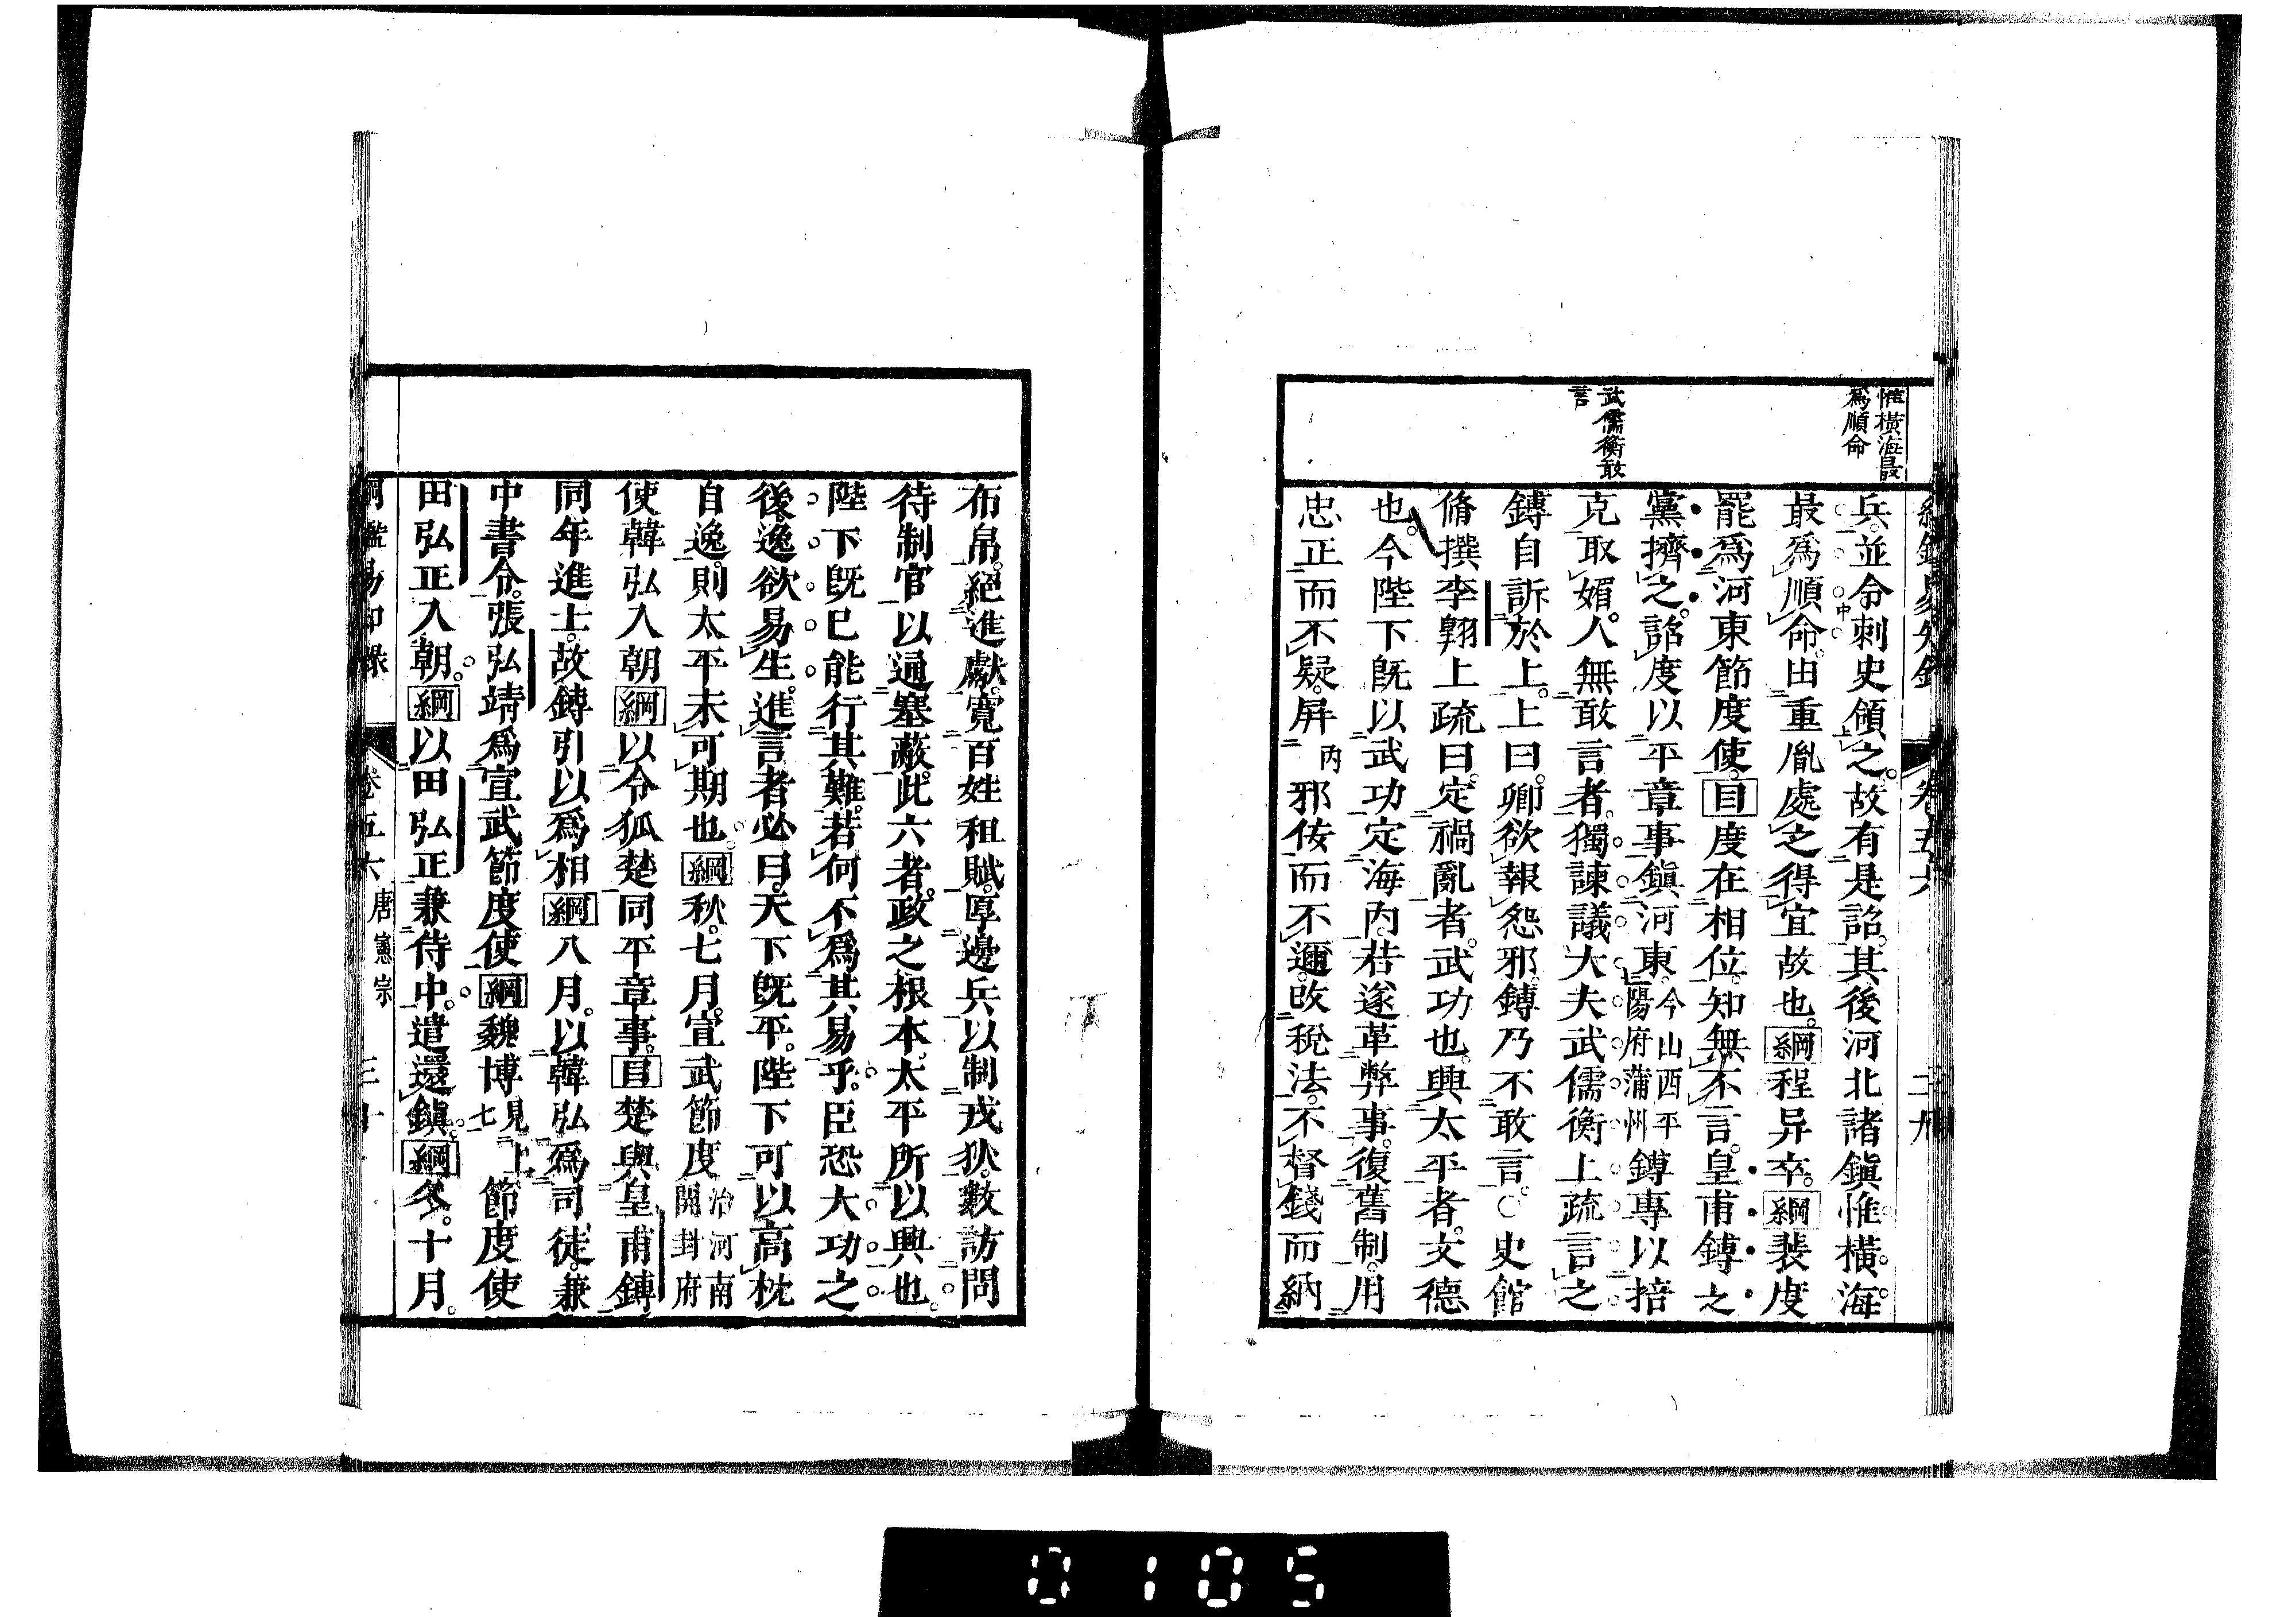 惟橫海最
爲順命
武儒衡敢
言
兵。並令刺史領之。故有是詔。其後河北諸鎭惟橫海
最爲順命。由重胤處之得宜故也。綱程异卒。綱裴度
罷爲河東節度使。目度在相位。知無不言。皇甫鎛之
黨擠之。詔度以平章事鎭河東。今山西平陽府蒲州鎛專以掊
克取媚。人無敢言者。獨諫議大夫武儒衡上疏言之
鎛自訴於上。上曰。卿欲報怨邪。鎛乃不敢言。○史館
脩撰李翺上疏曰。定禍亂者。武功也。興太平者。文德
也。今陛下旣以武功定海內。若遂革弊事。復舊制。用
忠正而不疑。屛丙邪佞而不邇。改稅法。不督錢而納
布帛。絕進獻。寬百姓租賦。厚邊兵以制戎狄。數訪問
待制官以通塞蔽。此六者。政之根本。太平所以興也。
陛下旣已能行其難。若何不爲其易乎。臣恐大功之
後。逸欲易生。進言者必曰。天下旣平。陛下可以高枕
自逸。則太平未可期也。綱秋。七月。宣武節度治河南開封府
使韓弘入朝綱以令狐楚同平章事。目楚與皇甫鎛
同年進士。故鎛引以爲相綱八月。以韓弘爲司徒。兼
中書令。張弘靖爲宣武節度使綱魏博見上七節度使
田弘正入朝。綱以田弘正兼侍中。遣還鎭。綱冬。十月。
卷五六 唐憲宗 三十